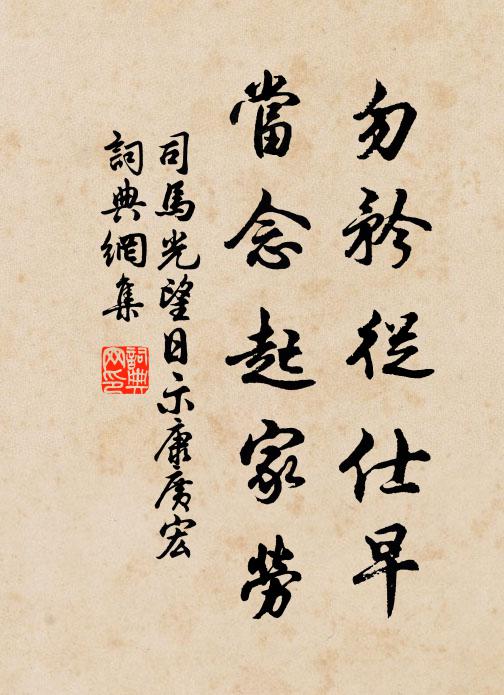 勿矜從仕早
當念起家勞
司馬光望日示康廣宏
詞典網集
詞典網印